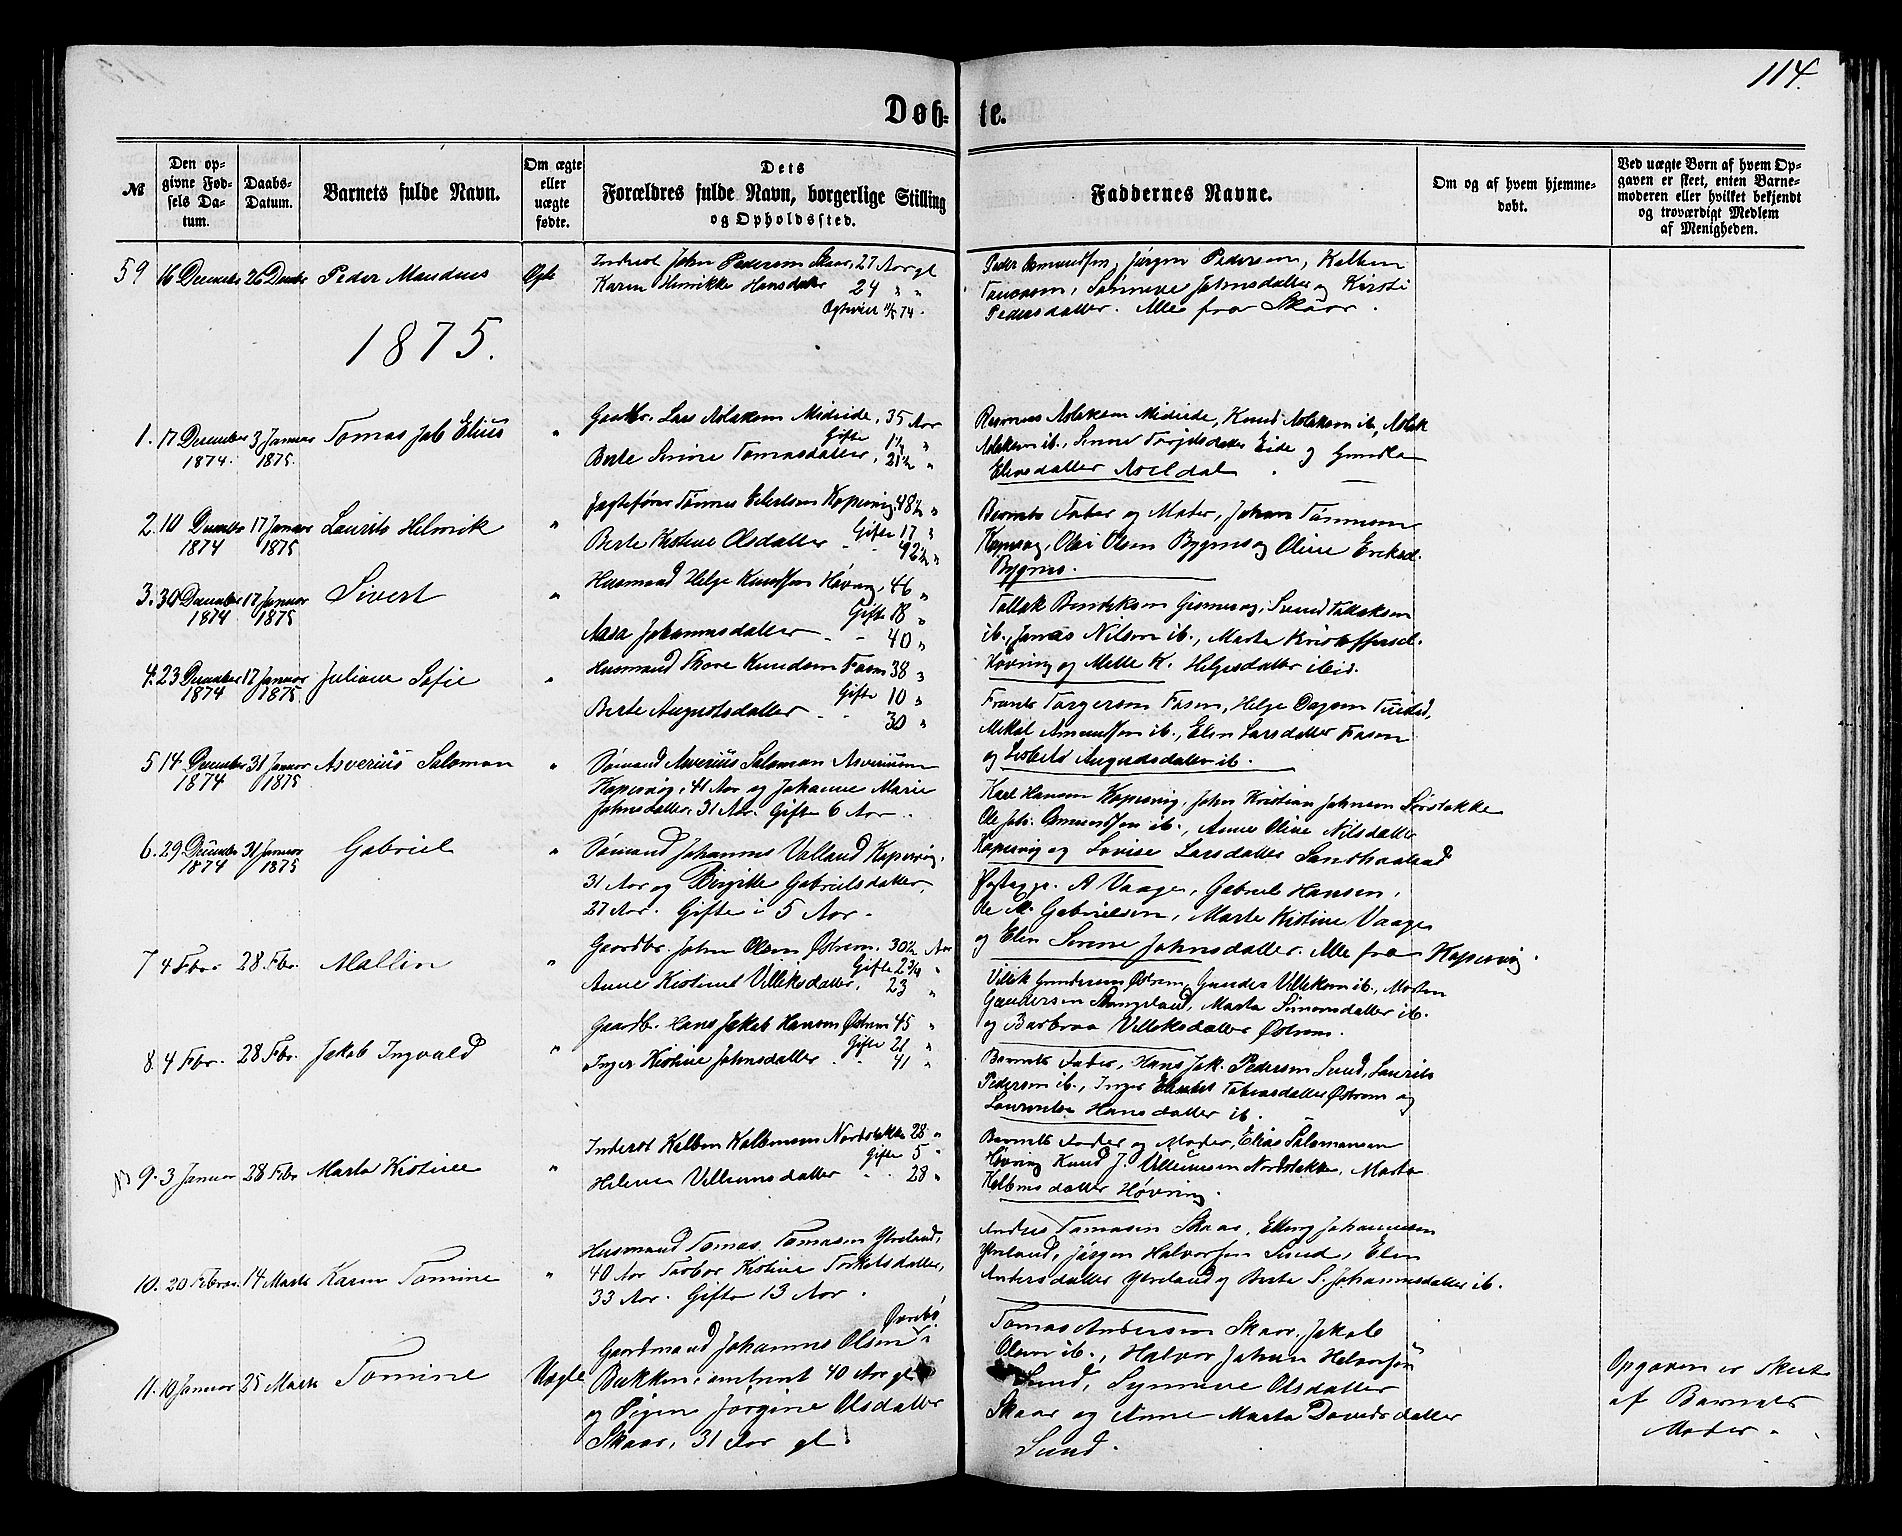 114.
Døb- te.
№
Den opgivne Fødsels Datum.
Daabs-Datum.
Barnets fulde Navn.
Om ægte eller uægte fødte.
Dets Forældres fulde Navn, borgerlige Stilling og Opholdssted.
Faddernes Navne.
Om og af hvem hjemmedøbt.
Ved uægte Børn af hvem Opgaven er skeet, enten Barnemoderen eller hvilket bekjendt og troværdigt Medlem af Menigheden.
59 16 December 26 Decbr Peder Mandius Ægte
Inderst John Pedersen Skaar, 27 Aar gl
Karen Henrikke Hansdatter 24 " "
Ægteviet 74.
Peder Osmundsen, Jørgen Pedersen, Kolben
Sønneve Johnsdatter og Kirsti
Pedersdatter. Alle fra Skaar.
1875.
1. 17 December 1874. 3 Januar 1875. Tomas Jab Elius "
Gaardbr. Lars Aslaksen Midteide, 35 Aar
Gifte 1½ "
Berte Serine Tomasdatter, 21½ "
Rasmus Aslaksen Midteide, Knud Aslaksen ib., Aslak
Aslaksen ib., Serine Torjusdatter Eide og Gundla
Eliasdatter Aseldal.
2. 10 December 1874 17 Januar 1875 Laurits Helmik "
Jagtefører Tønnes Eilertsen Kopervig, 48½ "
Gifte 17 "
Berte Kistine Olsdatter " " 42½ "
Barnets Fader og Moder, Johan Tønnesen
Kopervig, Olai Olsen Bygnes og Oline Ericksd.
Bygnes.
3. 30 December 1874 17 Januar 1875 Sivert "
Husmand Helge Knudsen Høvring, 46 "
Gifte 18 "
Aasa Johannesdatter " " 40 "
Tallak Bendiksen Tallaksen
ib., Jonas Nilsen ib., Marta Kristoffersd.
Høvring og Mette K. Helgesdatter ibid.
4. 23 December 1874 17 Januar 1875 Juliane Sofie "
Husmand Thore Knudsen Fosen 38 "
Gifte 10 "
Berte Augustsdatter " " 30 "
Frants Torgersen Fosen, Helge Dagsen
Mikal Amundsen ib., Elen Larsdatter Fosen
og Lisbeta Augustsdatter ib.
5 14 December 1874 31 Januar 1875 Asverius Salomon "
Sømand Asverius Salomon Asveriussen
Kopervig, 41 Aar og Johanne Marie
Johnsdatter, 31 Aar. Gifte 6 Aar.
Karl Hansen Kopervig, John Kristian Johnsen Sørstokke
Ole Joh. Osmundsen ib., Anne Oline Nilsdatter
Kopervig og Lovise Larsdatter Sandhaaland
6. 29 December 1874 31 Januar 1875 Gabriel "
Sømand Johannes Valland Kopervig,
31 Aar og Birgitte Gabrielsdatter,
27 Aar. Gifte i 5 Aar.
A Vaage, Gabriel Hansen,
Ole M. Gabrielsen, Marte Kistine Vaage
og Elen Serene Johnsdatter. Alle fra Kopervig.
7 4 Fbr. 28 Fbr. Mallin "
Gaardbr. John Olsen Østrem. 30½ Aar
Gifte 2¾ "
Anne Kistine Villiksdatter, 23 "
Villik Gundersen Østrem, Gunder Villiksen ib., Morten
Gundersen Stangeland, Marta Simonsdatter ib.
og Barbraa Villiksdatter Østrem.
8. 4 Fbr. 28 Fbr. Jakob Ingvald "
Gaardbr. Hans Jakob Hansen Østrem 45 "
Gifte 21 "
Inger Kistine Johnsdatter " " 41 "
Barnets Fader, Hans Jak. Pedersen Sund, Laurits
Pedersen ib., Inger Elisabet Tobiasdatter Østrem og
Hansdatter ib.
9. 3 Januar 28 Fbr Marta Kistine "
Inderst Kolben Kolbensen Nordstokke 28 "
Gifte 5 "
Helene Villumsdatter " " 28 "
Barnets Fader og Moder, Elias Salomonsen
Høvring Knud J. Villumsen Nordstokke, Marta
Kolbensdatter Høvring.
10. 20 Februar 14 Marts Karen Tomine "
Husmand Tomas Tomasen Ytreland,
40 Aar Torbor Kistine Torkelsdatter,
33 Aar. Gifte 13 Aar.
Andres Tomasen Skaar, Elling Johannesen
Ytreland, Jørgen Halvorsen Sund, Elen
Andersdatter Ytreland og Berte S. Johannesdatter ib.
11. 10 Januar 25 Marts Tomine Uægte
Gaardmand Johannes Olsen i
Bakken, omtrent 40 Aar gl
og Pigen Jørgine Olsdatter
Skaar, 31 Aar gl.
Tomas Andersen Skaar, Jakob
Olsen ib., Halvor Johan Helvorsøn
Sund, Synneve Olsdatter
Skaar og Anne Marta Davidsdatter
Sund.
Opgaven er skeet
af Barnets
Moder.